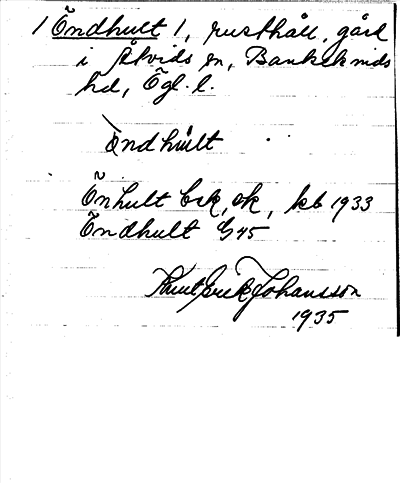 1 Öndhult 1, rusthåll, gård
i Åtvids sn, Bankekinds
hd, Ögl. l.
öndhult
Önhult Esk, ek, kb 1933
Öndhult G 45
Knut Erik Johansson
1935